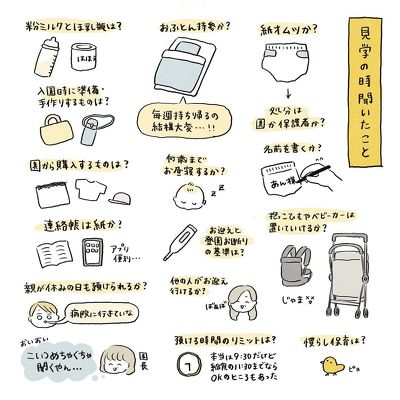 見学の時聞いたこと
粉ミルクとほ乳瓶は？
ほほえ
おふとん持参か？
毎週持ち帰るの
結構大変…!!
紙オムツか？
処分は
園か保護者か？
名前を書くか？
あん様
入園時に準備・
手作りするものは？
園から購入するものは？
何歳まで
お昼寝するか？
z z
連絡帳は紙か？
アプリ
便利…
お迎えと
登園お断り
の基準は？
抱っこひもやベビーカーは
置いていけるか？
じゃま
親が休みの日も預けられるか？
病院に行きていな
他の人がお迎え
行けるか？
ばぁば
おいおい
こいつめちゃくちゃ
聞くやん…
園長
預ける時間のリミットは？
本当は9:30だけど
給食の11:30までなら
OKのところもあった
慣らし保育は？
ピヨ